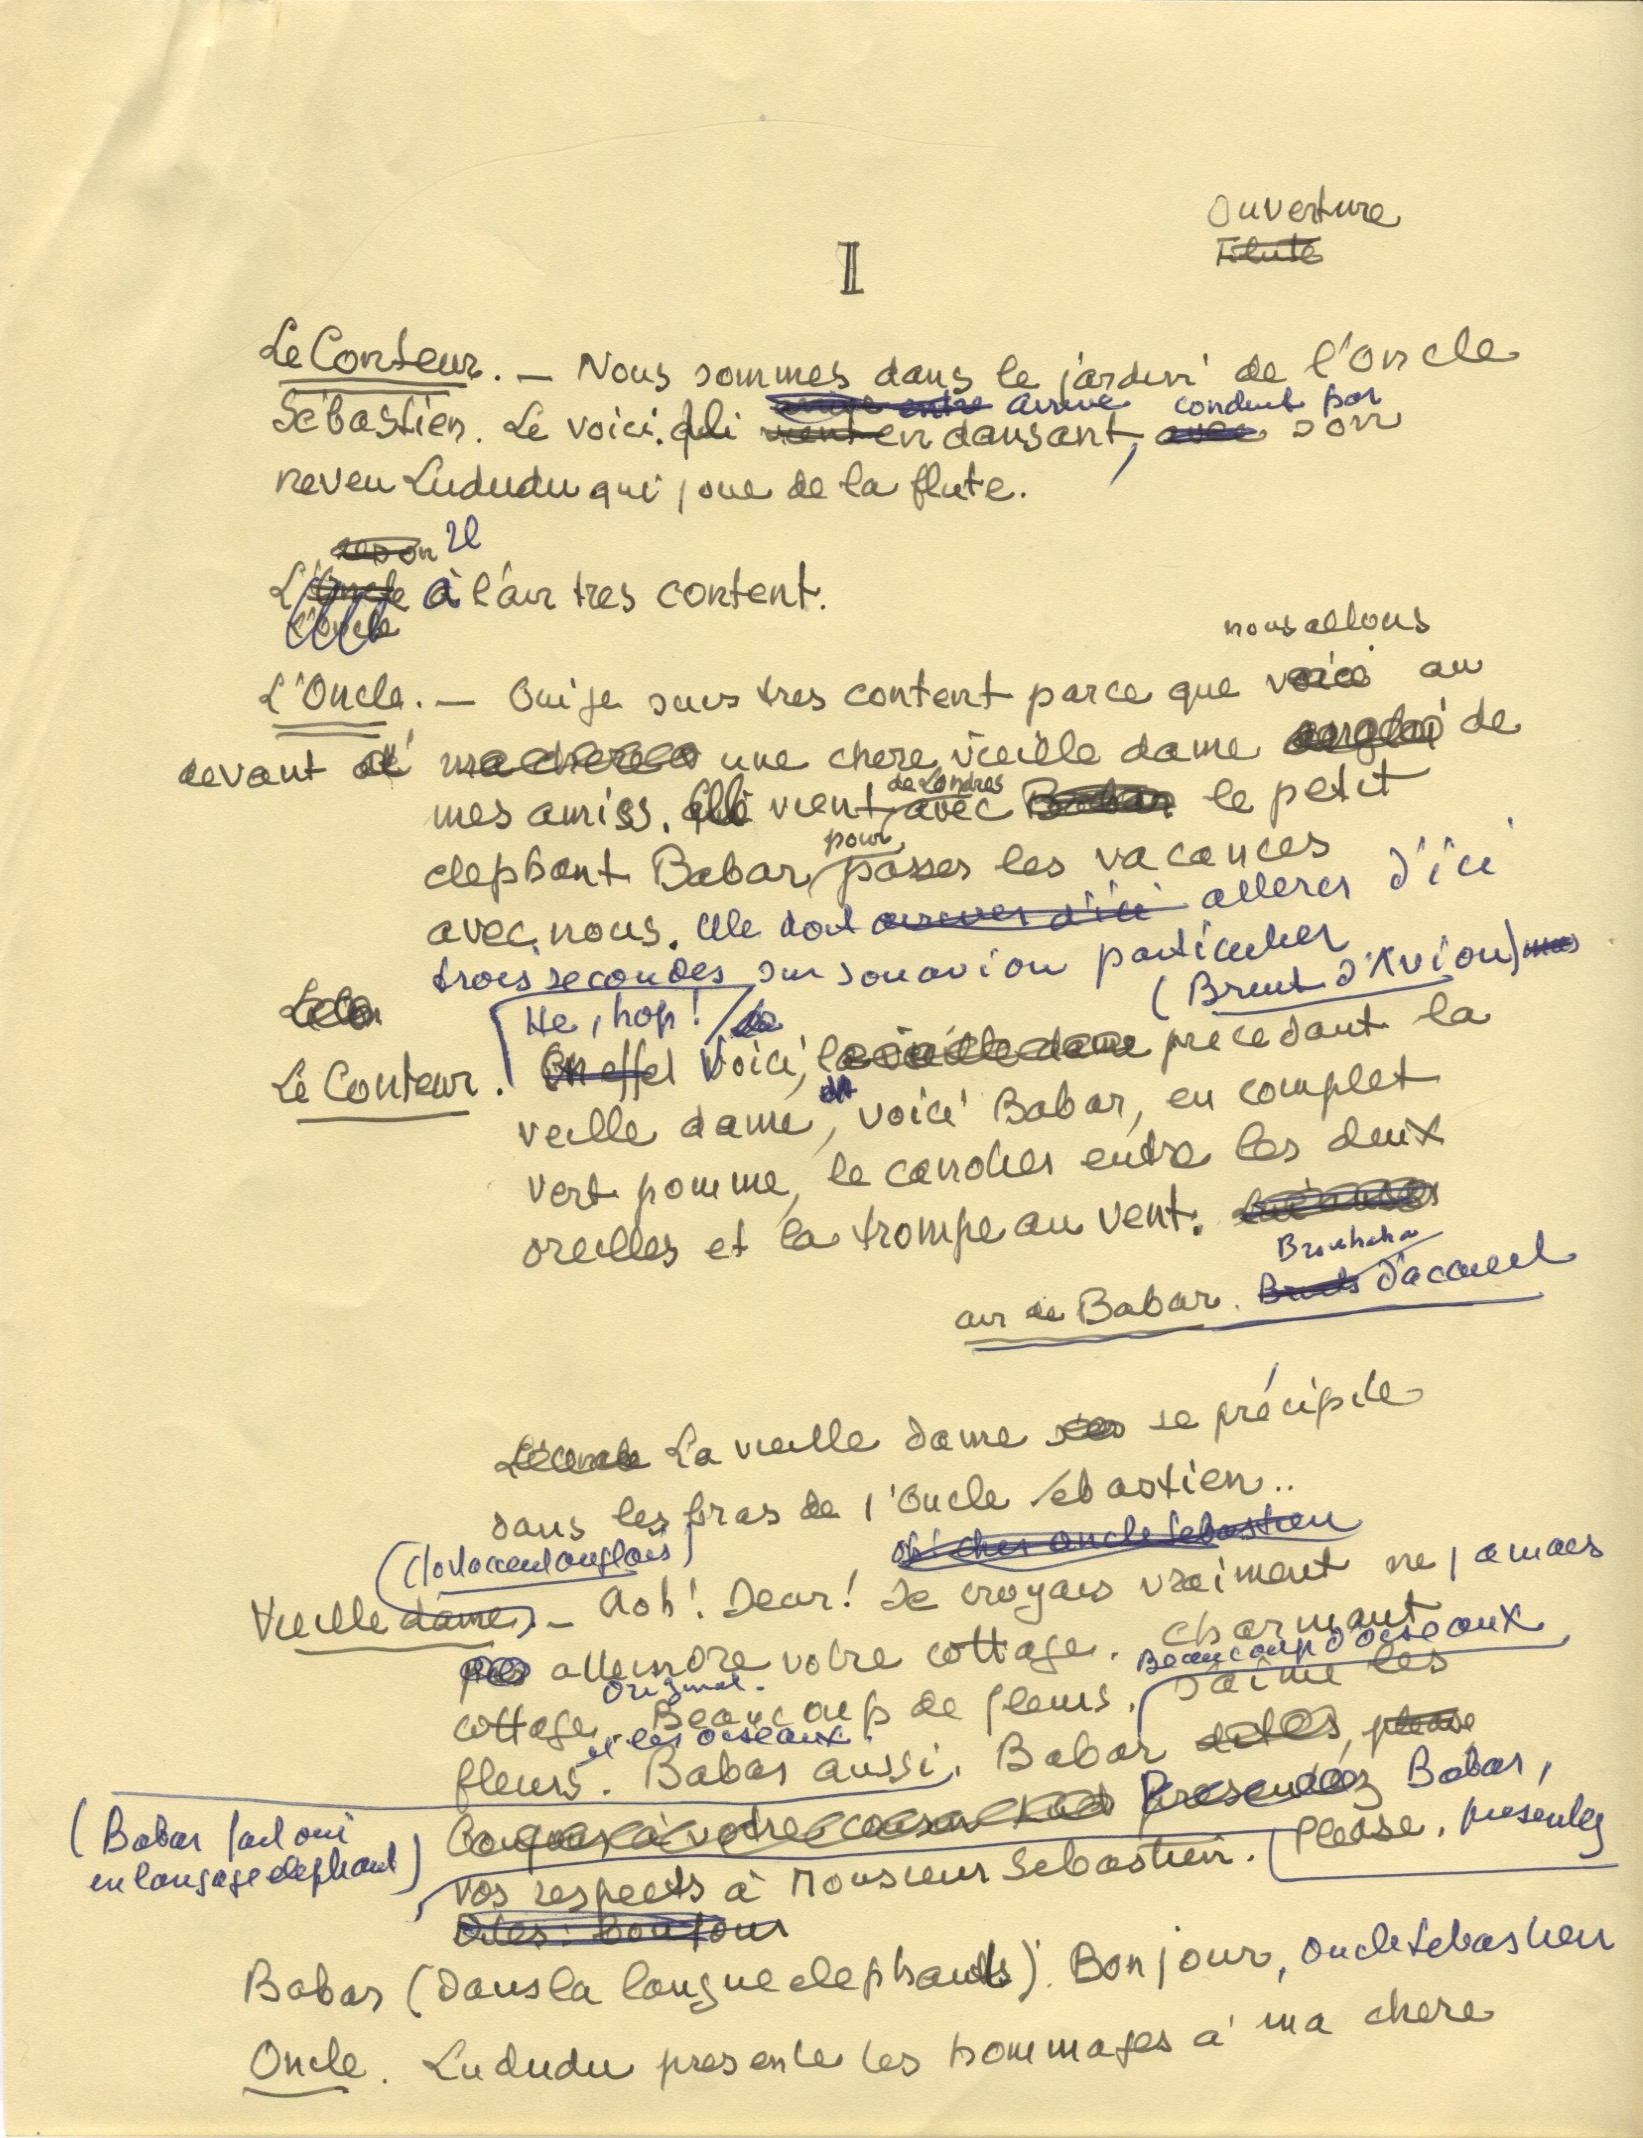 Ouverture
Flute
I
Le Conteur. — Nous sommes dans le jardin de l'oncle
arrive conduit par
Sébastien. Le voici. qui vient en dansant, avec son
neveu Lududu qui joue de la flute.
Il
L'Oncle à l'air tres content.
L'Oncle
nous allons
L'Oncle. — Oui je suis tres content parce que voici au
devant de ma chere une chere vieille dame de
de Londres
mes amies. Elle vient avec Babar le petit
pour
elephant Babar, passer les vacances
avec nous. Elle doit arriver d'ici atterir d'ici
trois secondes sur son avion particulier
(Bruit d'Avion)
He, hop!
Le Conteur. En effet Voici, la vieille dame precedant la
veille dame, voici Babar, en complet
vert pomme, le canotier entre les deux
oreilles et la trompe au vent.
Brouhaha
air de Babar. Bruits d'acceuil
La vieille dame se précipite
dans les bras de l'Oncle Sébastien..
(l'accent anglais)
oh! cher oncle Sebastien
Vieille dame. — Aoh! Dear! Je croyais vraiment ne jamais
pas atteindre votre cottage. Charmant
Beaucoup d'oiseaux
original.
cottage. Beaucoup de fleurs. J'aime les
et les oiseaux.
fleurs. Babar aussi. Babar dites, please
(Babar fait oui
en langage elephant)
Bonjour à votre Presentez Babar,
Please, presentez
vos respects à Monsieur Sebastien.
Dites: bonjour
Babar (Dans la langue elephants). Bonjour, oncle Sebastien
Oncle. Lududu presente les hommages à ma chere